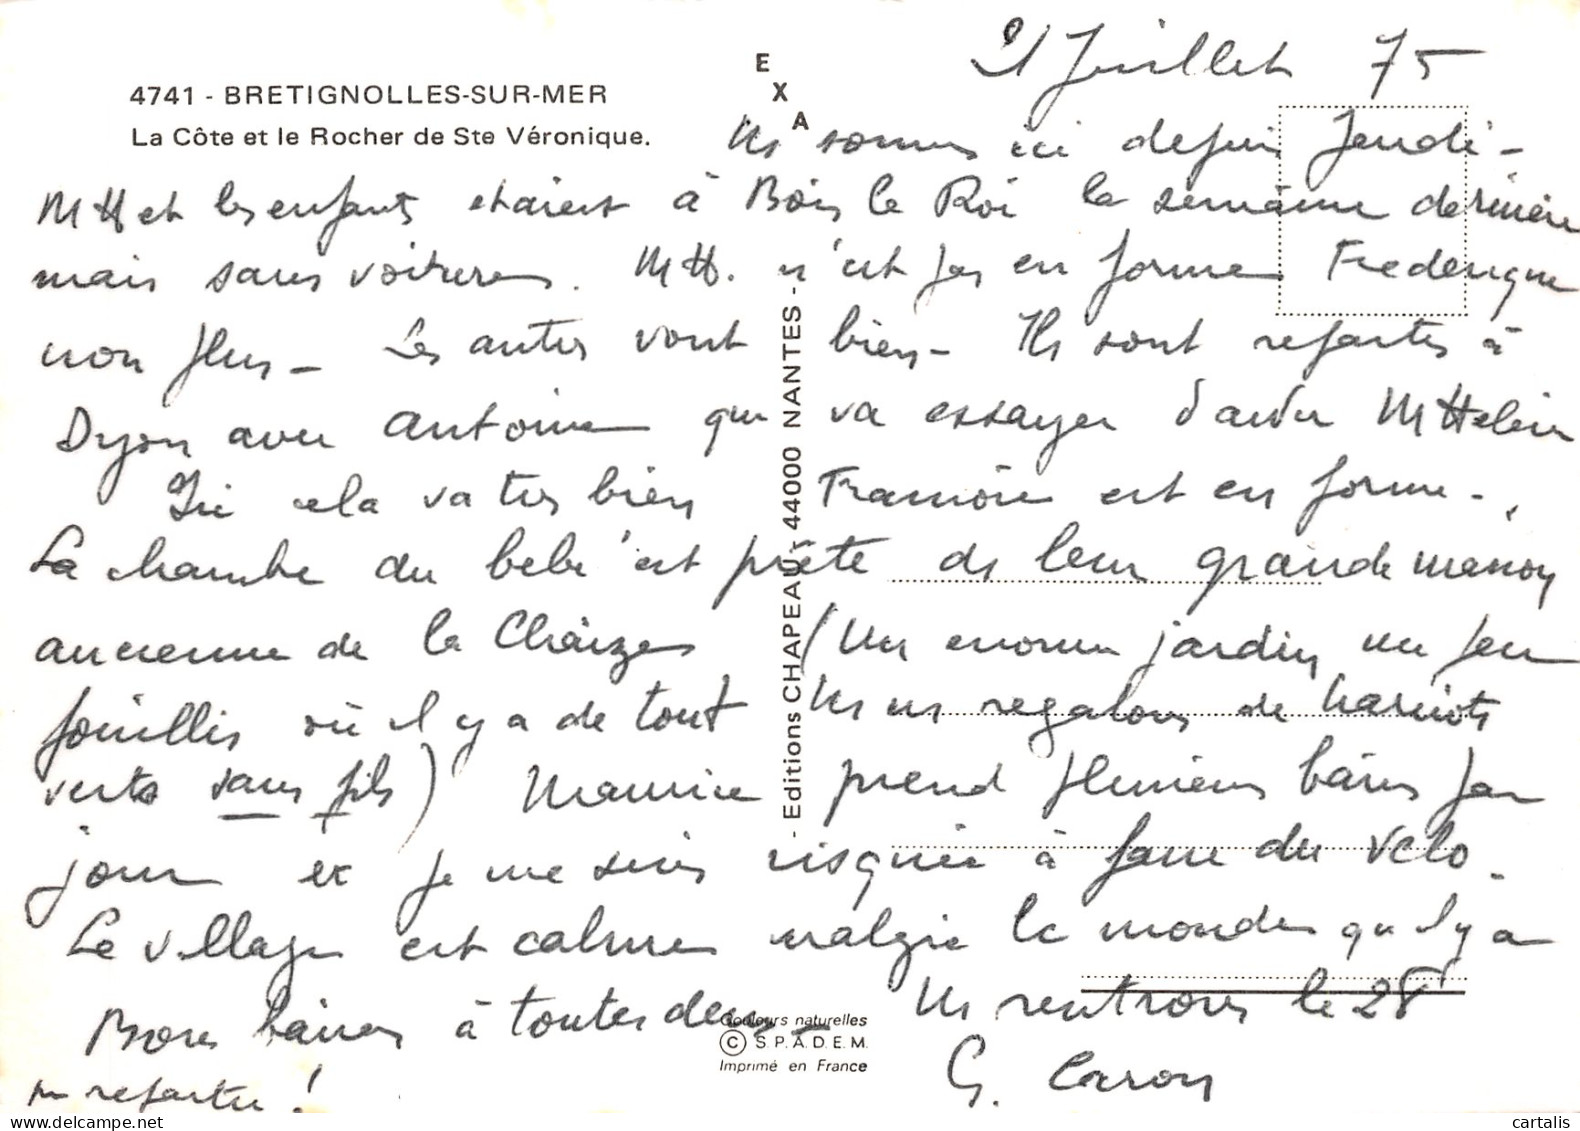 21 Juillet 75
4741 - BRETIGNOLLES-SUR-MER
La Côte et le Rocher de Ste Véronique.
EXA
Ns sommes ici depuis Jeudi -
MH et les enfants etaient à Bois le Roi la semaine dernière
mais sans voitures. MH. n'est pas en forme Frederique
non plus - Les autres vont bien - Ils sont repartis à
Dijon avec Antoine qui va essayer d'aider M Helène
Ici cela va tres bien Françoise est en forme -
La chambre du bebe est prête ds leur grande maison
ancienne de la Chaize (Un enorme jardin un peu
fouillis où il y a de tout Ns ns regalons de haricots
verts sans fils) Maurice prend plusieurs bains par
jour et je me suis risquée à faire du vélo.
Le village est calme malgré le monde qu'il y a
Bons baisers à toutes deux - Ns rentrons le 28
pr repartir !
G. Caron
- Editions CHAPEAU - 44000 NANTES -
Couleurs naturelles
© S.P.A.D.E.M.
Imprimé en France
cartalis